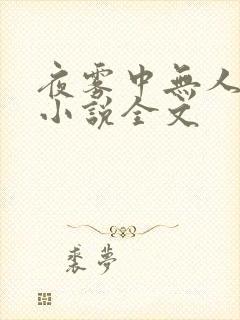 夜雾中無人
小說全文
裘夢